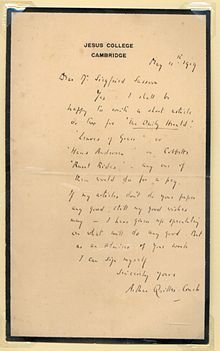 JESUS COLLEGE
CAMBRIDGE
May 11th 1919
Dear Mr Siegfried Sassoon
Yes — I shall be
happy to write a short article
or two for 'The Daily Herald'.
'Leaves of Grass' or
'Hans Andersen' or Cobbett's
'Rural Rides' — any one of
them would do for a peg.
If my articles don't do your paper
any good, still my good wishes
may — I have given up speculating
on what will do any good. But
as an admirer of your work
I can sign myself
Sincerely yours
Arthur Quiller-Couch